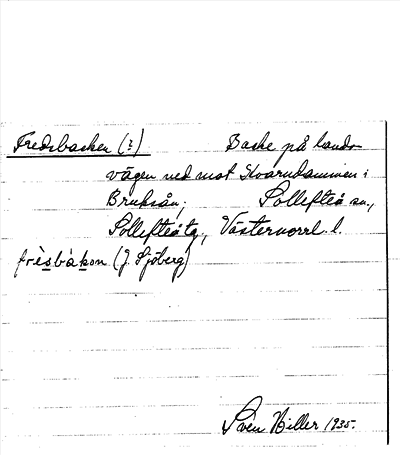 Fredsbacken (?) Backe på lands-
vägen ned mot Kvarndammen i
Bruksån; Sollefteå sn.,
Sollefteå tg., Västernorrl. l.
frèsbàkon (J. Sjöberg)
Sven Hiller 1935.